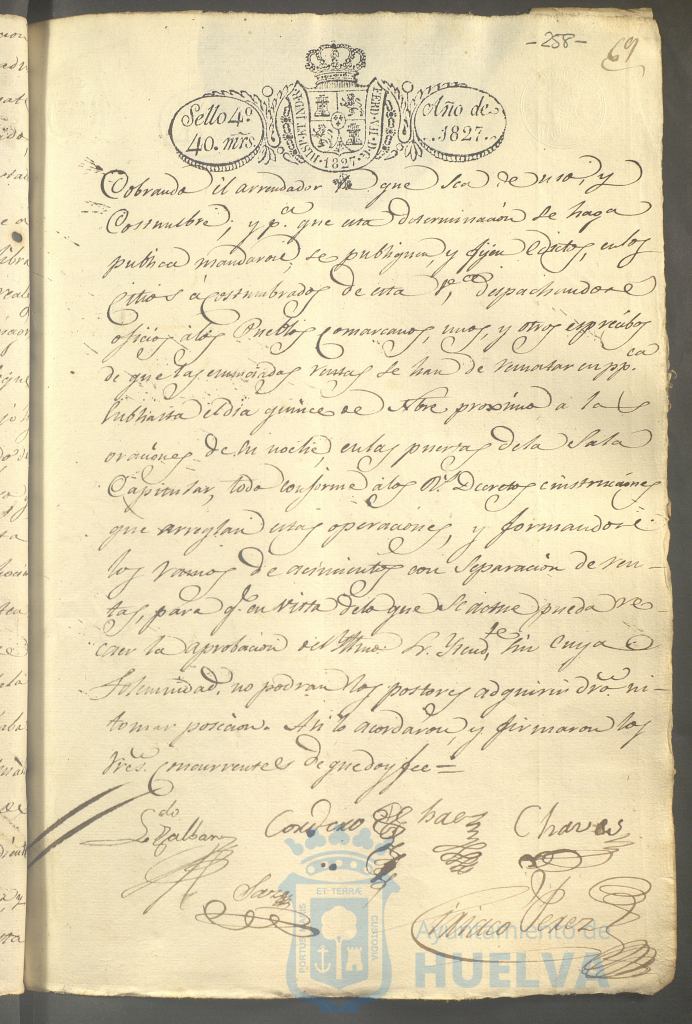 -258-
69
Sello 4º
40. mrs.
HISP. ET IND. R.
FERD. VII. D. G.
1827
Año de
1827.
Cobrando el arrendador lo que sea de uso, y
Costumbre; y pª que esta determinacion se haga
publica mandaron se publiquen y fijen Edictos, en los
Citios acostumbrados de esta vª, despachandose
oficios a los Pueblos comarcanos, unos, y otros expresibos
de que las enunciadas rentas se han de rematar en ppca
Subhasta el dia quince de Nbre proximo a las
oraciones de su noche, en las puertas de la Sala
Capitular, todo conforme a los Rs. Decretos e instrucciones
que arreglan estas operaciones, y formandose
los ramos de acimientos con Separacion de ren-
tas, para q.e en vista de lo que se actue pueda re-
caer la aprobacion del Yltmo Sr. Yntend.te, sin cuya
Solemnidad no podran los postores adquirir dro ni
tomar posecion. Asi lo acordaron, y firmaron los
Sres. Concurrentes de que doy fee =
Cordero
Chaves
Ignacio Perez
PORTUS MARIS
ET TERRÆ
CUSTODIA
Ayuntamiento de
HUELVA